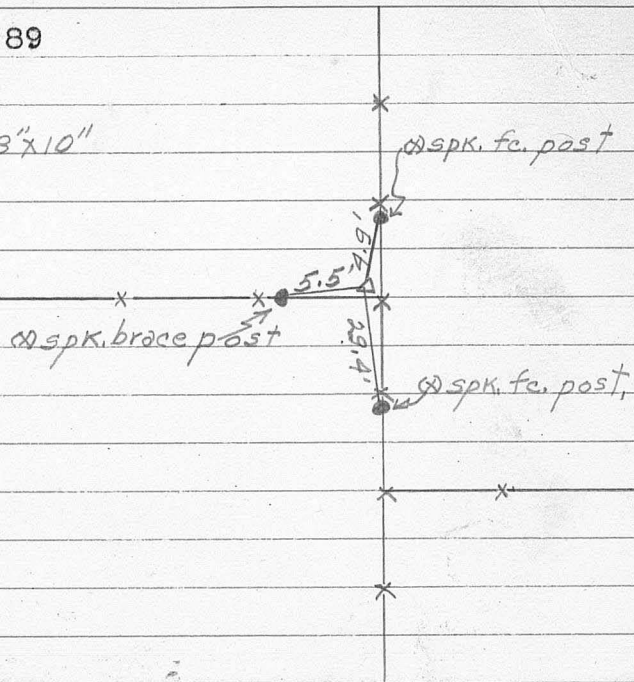 89
3"x10"
⊗ spk. fc. post
4.6'
5.5'
⊗ spk. brace post
29.4'
⊗ spk. fc. post,